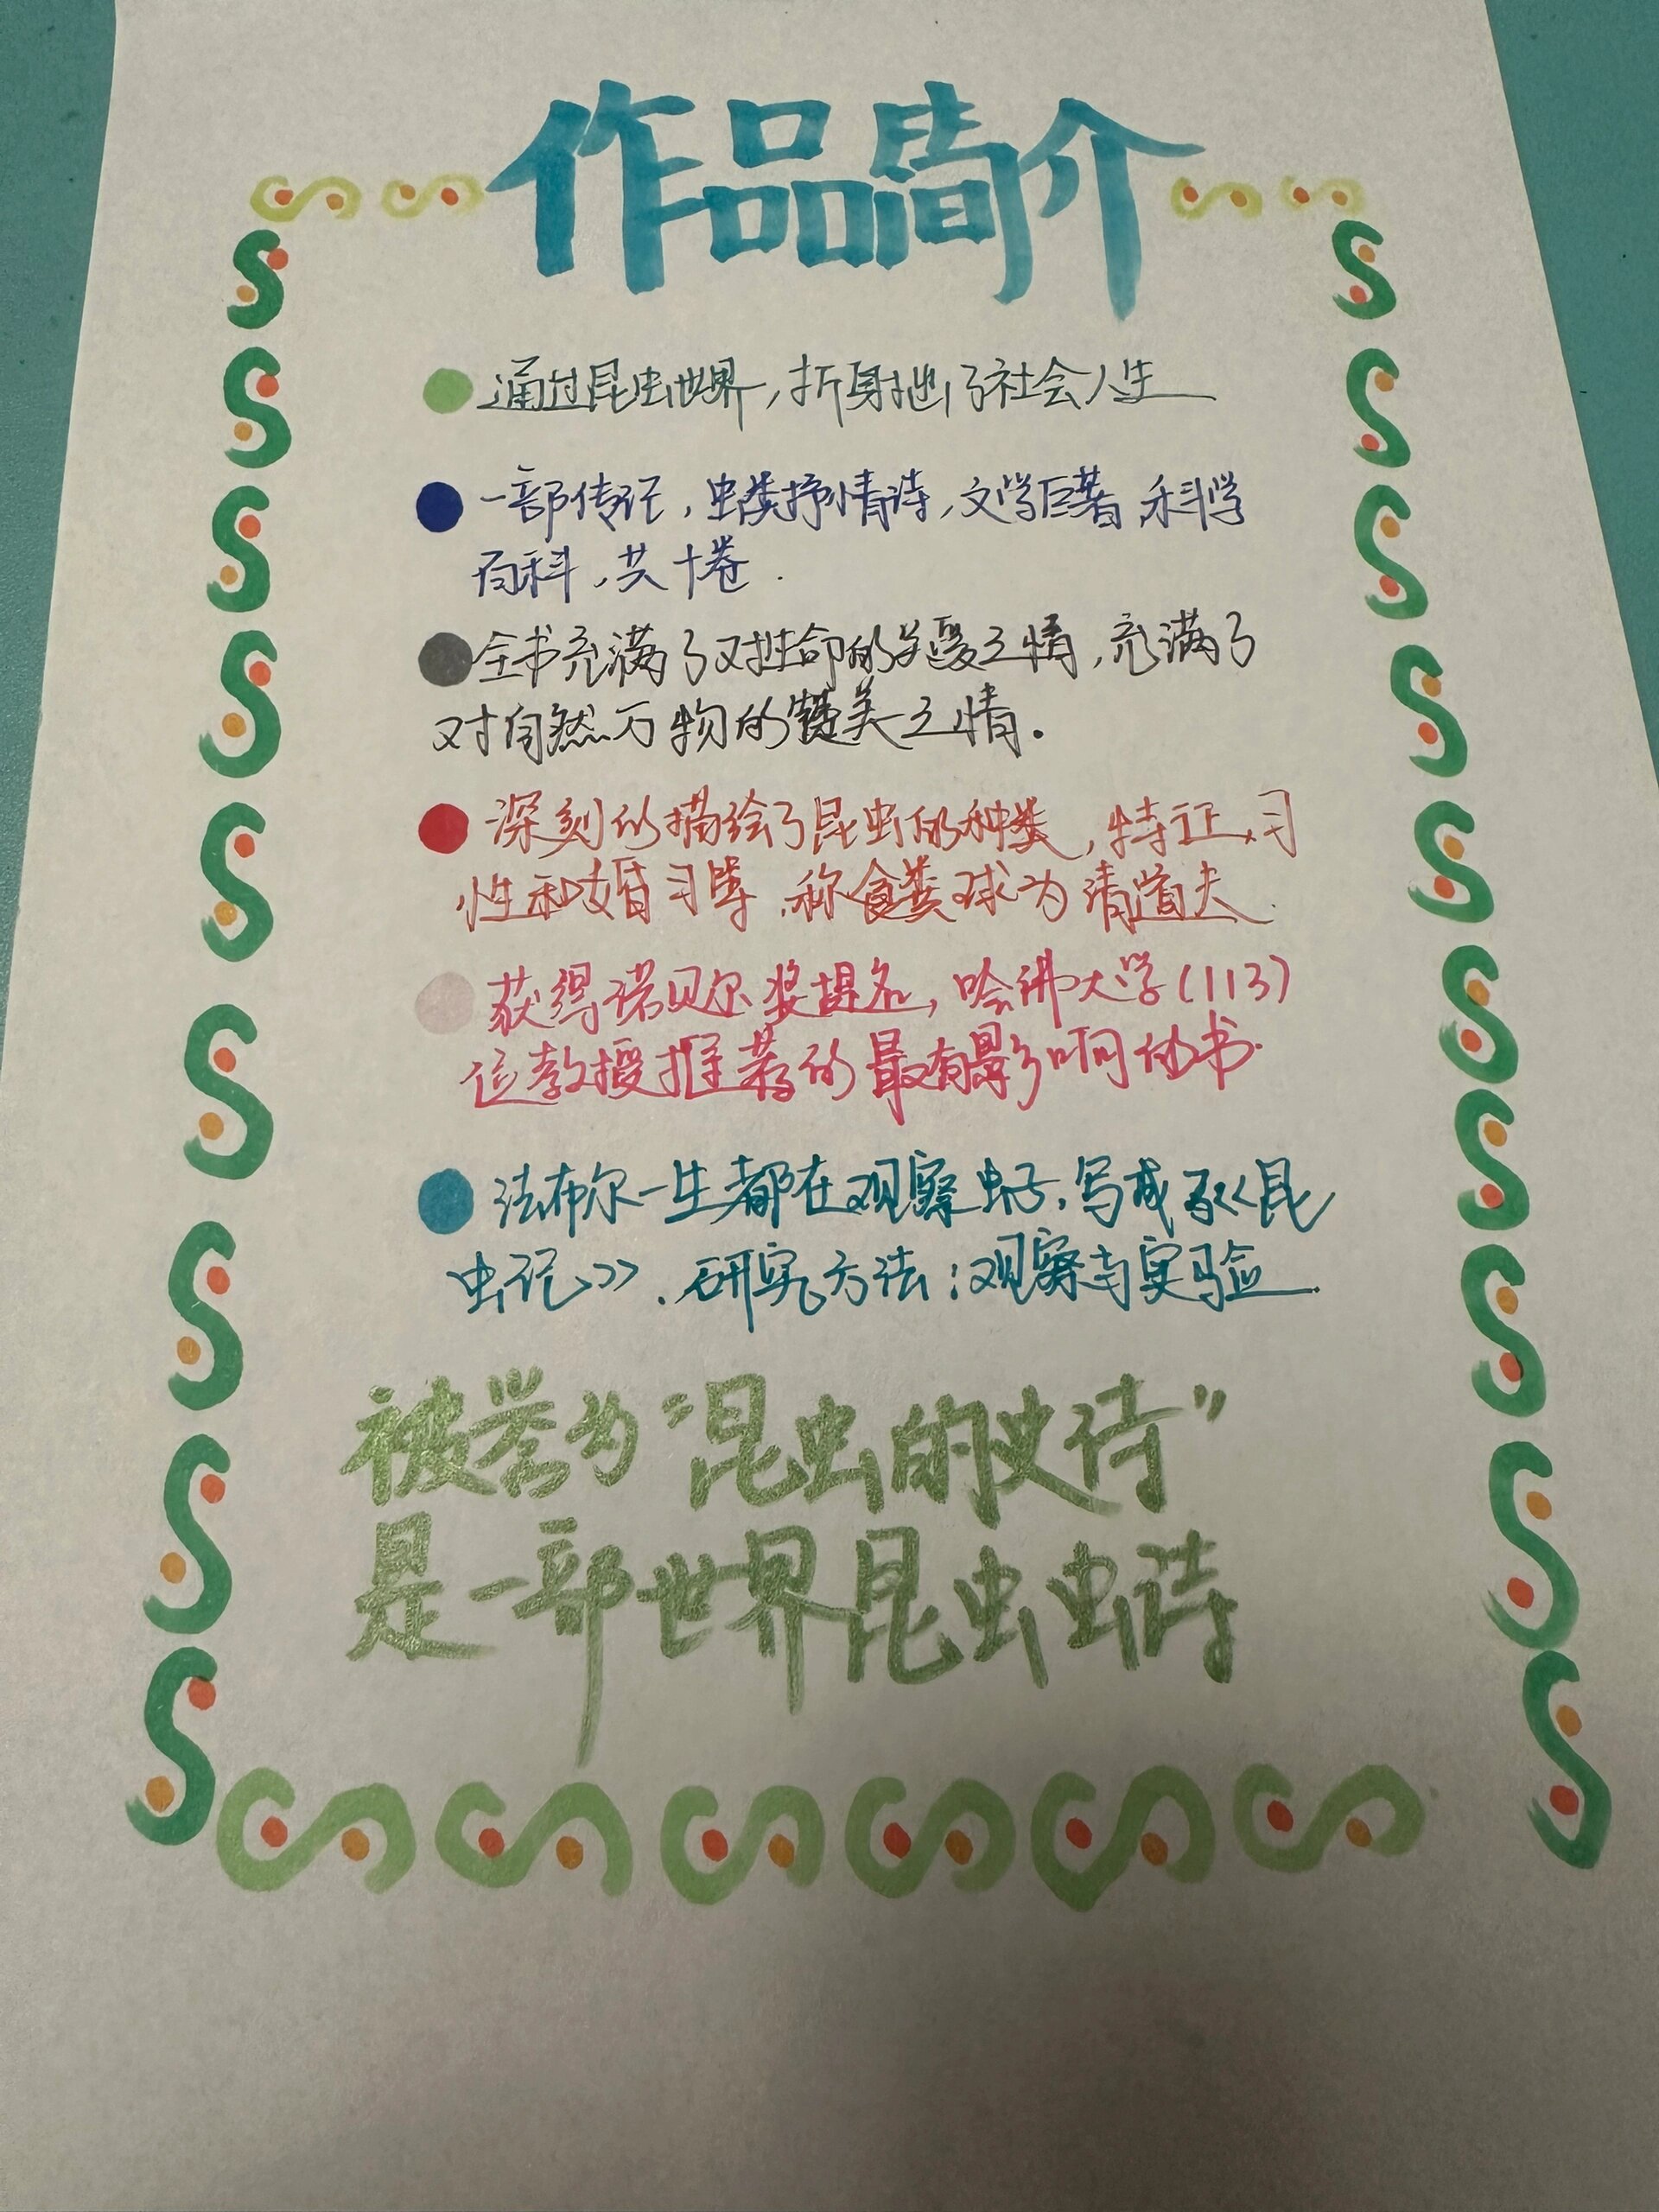 作品简介
通过昆虫世界，折射出了社会人生
一部传记，虫类抒情诗，文学巨著，科学
百科，共十卷.
全书充满了对生命的关爱之情，充满了
对自然万物的赞美之情.
深刻的描绘了昆虫的种类，特证、习
性和婚习等、称食粪球为清道夫.
获得诺贝尔奖提名，哈佛大学(113)
位教授推荐的最有影响的书.
法布尔一生都在观察虫子，写成了《昆
虫记》.研究方法：观察与实验.
被誉为“昆虫的史诗”
是一部世界昆虫虫诗